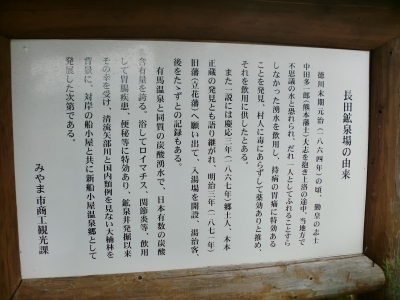 長田鉱泉場の由来
徳川末期元治(一八六四年)の頃、勤皇の志士
中田多一郎(熊本藩士)大志を抱き上洛の途中、当地方で
不思議の水と恐れられ、だれ一人としてふれることすら
しなかった湧水を飲用し、持病の胃痛に特効ある
ことを発見、村人に毒にあらずして薬効ありと推め、
それを飲用に供したとある。
また一説には慶応三年(一八六七年)郷士人、木本
正蔵の発見とも語り継がれ、明治三年(一八七一年)
旧藩(立花藩)へ願い出て、入湯場を開設、湯治客、
後をたゝずとの記録もある。
有馬温泉と同質の炭酸湧水で、日本有数の炭酸
含有量を誇る。浴してロイマチス、関節炎等、飲用
して胃腸疾患、便秘等に特効あり、鉱泉井発掘以来
その幸を受け、清流矢部川と国内類例を見ない大楠林を
背景に、対岸の船小屋と共に新船小屋温泉郷として
発展した次第である。
みやま市商工観光課